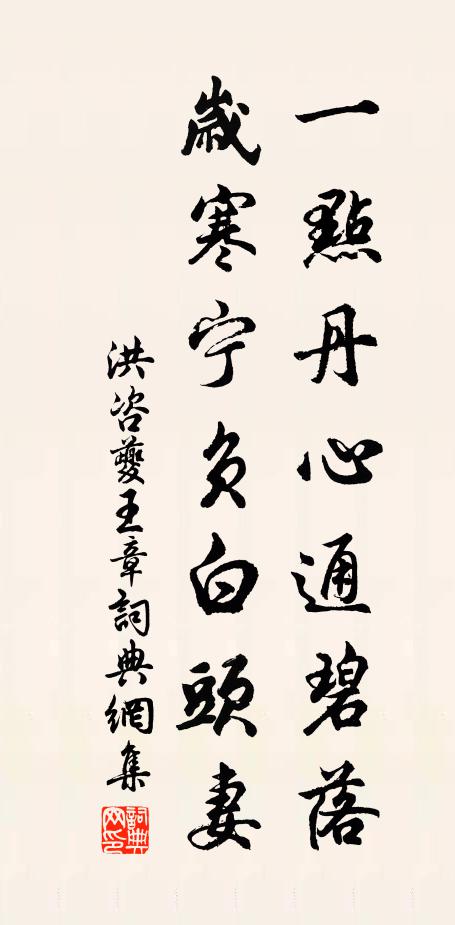 一點丹心通碧落
歲寒宁負白頭妻
洪咨夔王章詞典網集
詞典网印